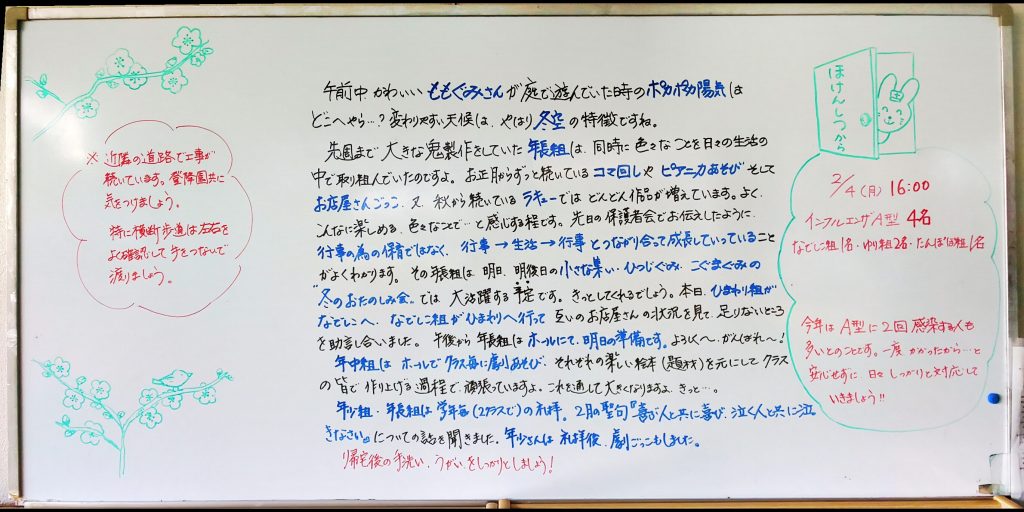 ※ 近隣の道路で工事が
続いています。登降園共に
気をつけましょう。
特に横断歩道は左右を
よく確認して手をつないで
渡りましょう。
午前中 かわいい ももぐみさんが庭で遊んでいた時のポカポカ陽気は
どこへやら…?変わりやすい天候は、やはり冬空の特徴ですね。
先週まで大きな鬼製作をしていた年長組は、同時に色々なことを日々の生活の
中で取り組んでいたのですよ。お正月からずっと続いているコマ回しやピアニカあそび そして
お店屋さんごっこ、又、秋から続いているラキューではどんどん作品が増えています。よく、
こんなに楽しめる、色々なことで…と感じる程です。先日の保護者会でお伝えしたように、
行事の為の保育ではなく、行事→生活→行事とつながり合って成長していっていること
がよくわかります。その年長組は明日、明後日の小さな集い・ひつじぐみ・こぐまぐみの
"冬のおたのしみ会"では 大活躍する予定です。きっとしてくれるでしょう。本日、ひまわり組が
なでしこへ、なでしこ組がひまわりへ行って 互いのお店屋さんの状況を見て、足りないところ
を助言し合いました。午後から年長組はホールにて、明日の準備です。よろしくへ、がんばれへ!
年中組は ホールでクラス毎に劇あそび、それぞれの楽しい絵本(題材)を元にしてクラス
の皆で作り上げる過程で、頑張っていますよ。これを通して大きくなりますよ、きっと…。
年少組・年長組は学年毎(2クラスで)の礼拝。2月の聖句『喜ぶ人と共に喜び、泣く人と共に泣
きなさい』についての話を聞きました。年少さんは礼拝後、劇ごっこもしました。
帰宅後の手洗い、うがいをしっかりとしましょう!
ほけんしつから
2/4(月) 16:00
インフルエンザA型 4名
なでしこ組1名・ゆり組2名・たんぽぽ組1名
今年は A型に2回感染する人も
多いとのことです。一度 かかったから…と
安心せずに、日々しっかりと対応して
いきましょう!!